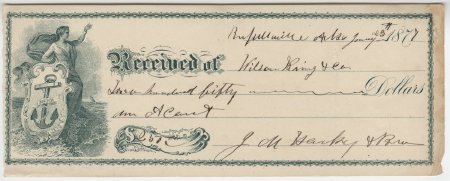 Russellville Arks Jany 23th 1877
Received of Wilson King & Co
Two hundred fifty Dollars
on Acount
$250
J M Harkey & Bro